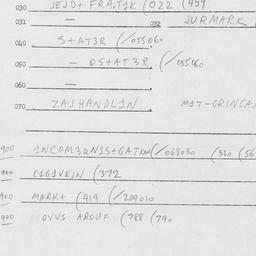 030 JEJD+ FRA,TJK (022 (459
031 — 032 JURMARK
040 S+AT3R (/055060
050 — OS+AT3R (/055060
060 —
070 ZAJHANDL1N MIT-GRINCA
900 1NCOM3RN1S+GATRAM(/068030 (320 (56
900 C1G1VEJN (372
900 MARK+ (419 (/209010
900 OVUS AROUF (788 (790